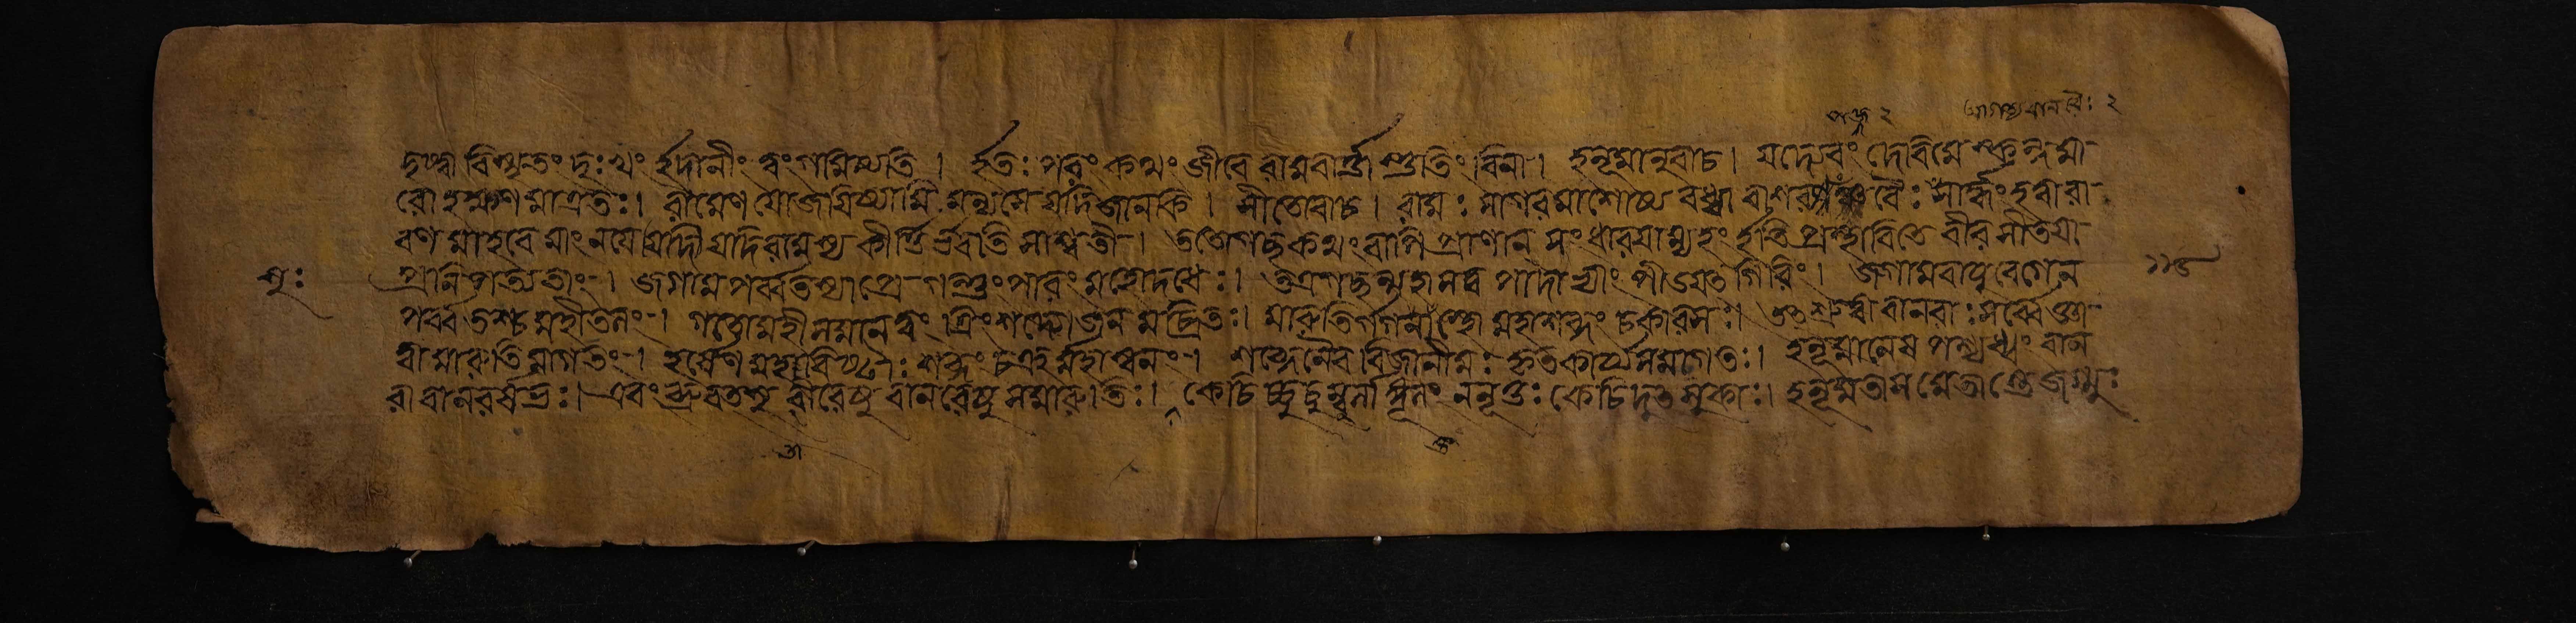 পঞ্জ ২ আগত্য বানরৈঃ ২
দৃষ্ট্বা বিস্মৃতং দুঃখং ইদানীং ত্বং গমিষ্যতি । ইতঃ পরং কথং জীবে রামবার্ত্তা শ্রুতিং বিনা । হনূমানুবাচ । যদ্যেবং দেবিমে স্কন্ধমা-
রোহক্ষণমাত্রতঃ । রামেণ যোজয়িষ্যামি মন্যসে যদি জানকি । সীতোবাচ । রামঃ সাগরমাশোষ্য বধ্বা বা শর রৈঃ সার্দ্ধং হত্বারা-
বণমাহবে মাং নয়ে যদি রামস্য কীর্ত্তির্ভবতি শাশ্বতী । ততোগচ্ছ কথং বাপি প্রাণান্ সংধারযাম্যহং ইতি প্রস্থাপিতে বীর সীতয়া
প্রানিপত্য তাং । জগাম পর্ব্বতস্যাগ্রে গন্তুং পারং মহোদধেঃ । তত্রগচ্ছন্মহাসত্ব পাদাভ্যাং পীডয়ত গিরিং । জগামবায়ুবেগেন
সুঃ
১১৫
পর্ব্বতশ্চ মহীতলং । গতোমহীসমানত্বং ত্রিংশদ্যোজনমুচ্ছ্রিতঃ । মারুতির্গগনান্তস্থো মহাশব্দং চকারসঃ । তং শ্রুত্বা বানরাঃ সর্ব্বে জ্ঞা-
ত্বা মারুতিমাগতং । হর্ষেণ মহাবিষ্টাঃ শব্দং চক্রুর্মহাস্বনং । শব্দেনৈব বিজানীমঃ কৃতকার্যসমাগতঃ । হনূমানেষ পশ্যধ্বং বান
রা বানরর্ষভঃ । এবং ব্রুবতসু বীরেষু বানরেষু সমারুতিঃ । কেচিচ্চুচুম্বুর্লাঙ্গূলং ননৃতুঃ কেচিদুতসুকাঃ । হনূমতা সমেতাস্তে জগ্মুঃ